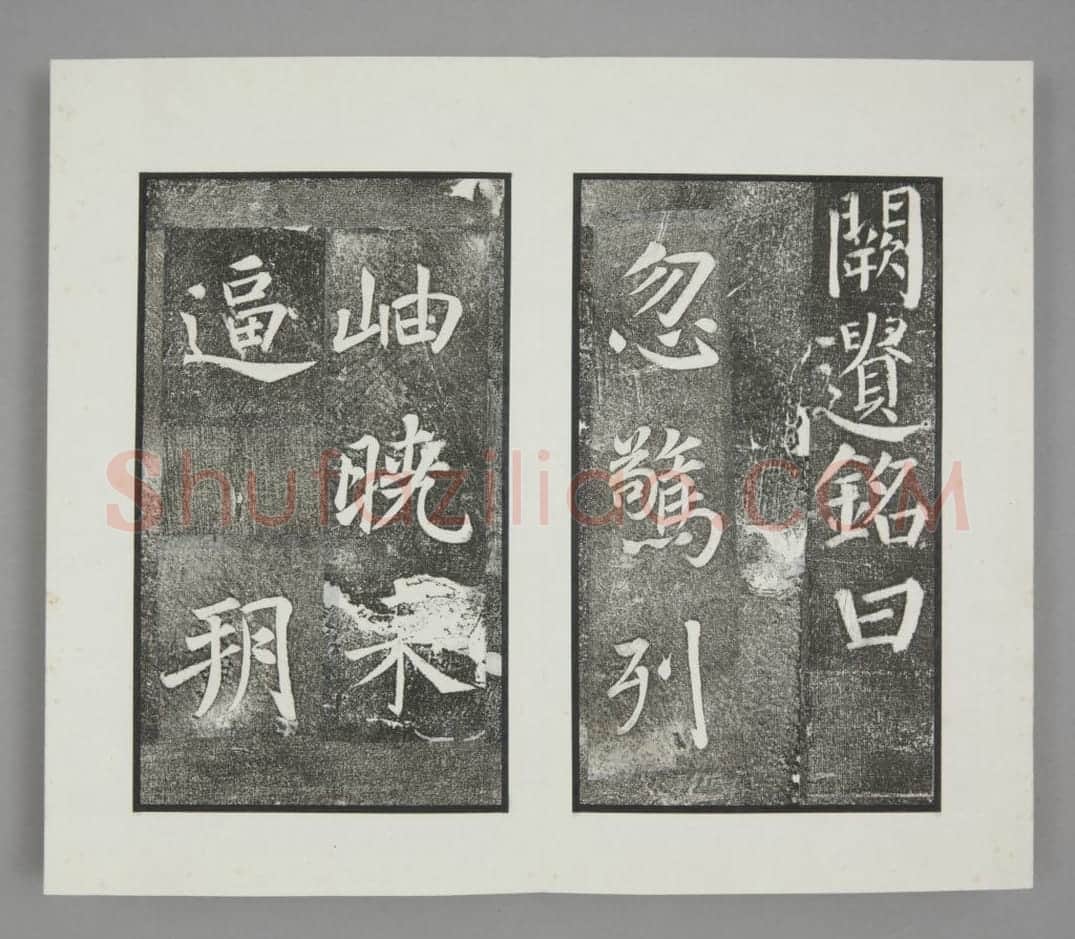 闕遺銘曰
忽驚列
岫曉來
逼朔
Shufaziliao.COM